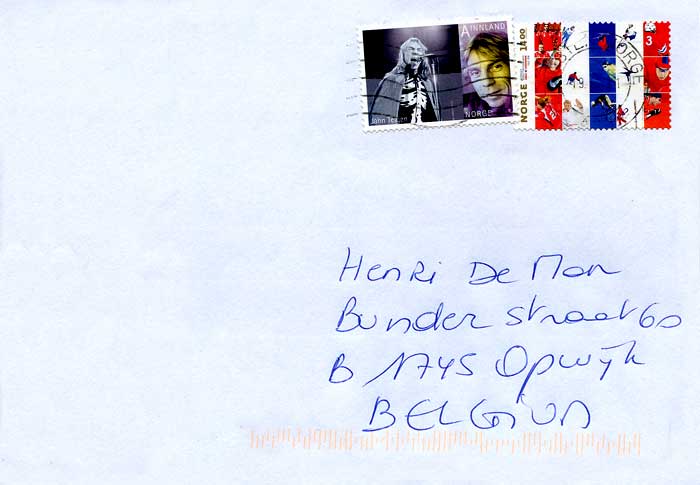 A INNLAND
John Teigen
NORGE
NORGE 14.00
3
NORGE
Henri De Man
Bunderstraat 60
B 1745 Opwijk
BELGIUM